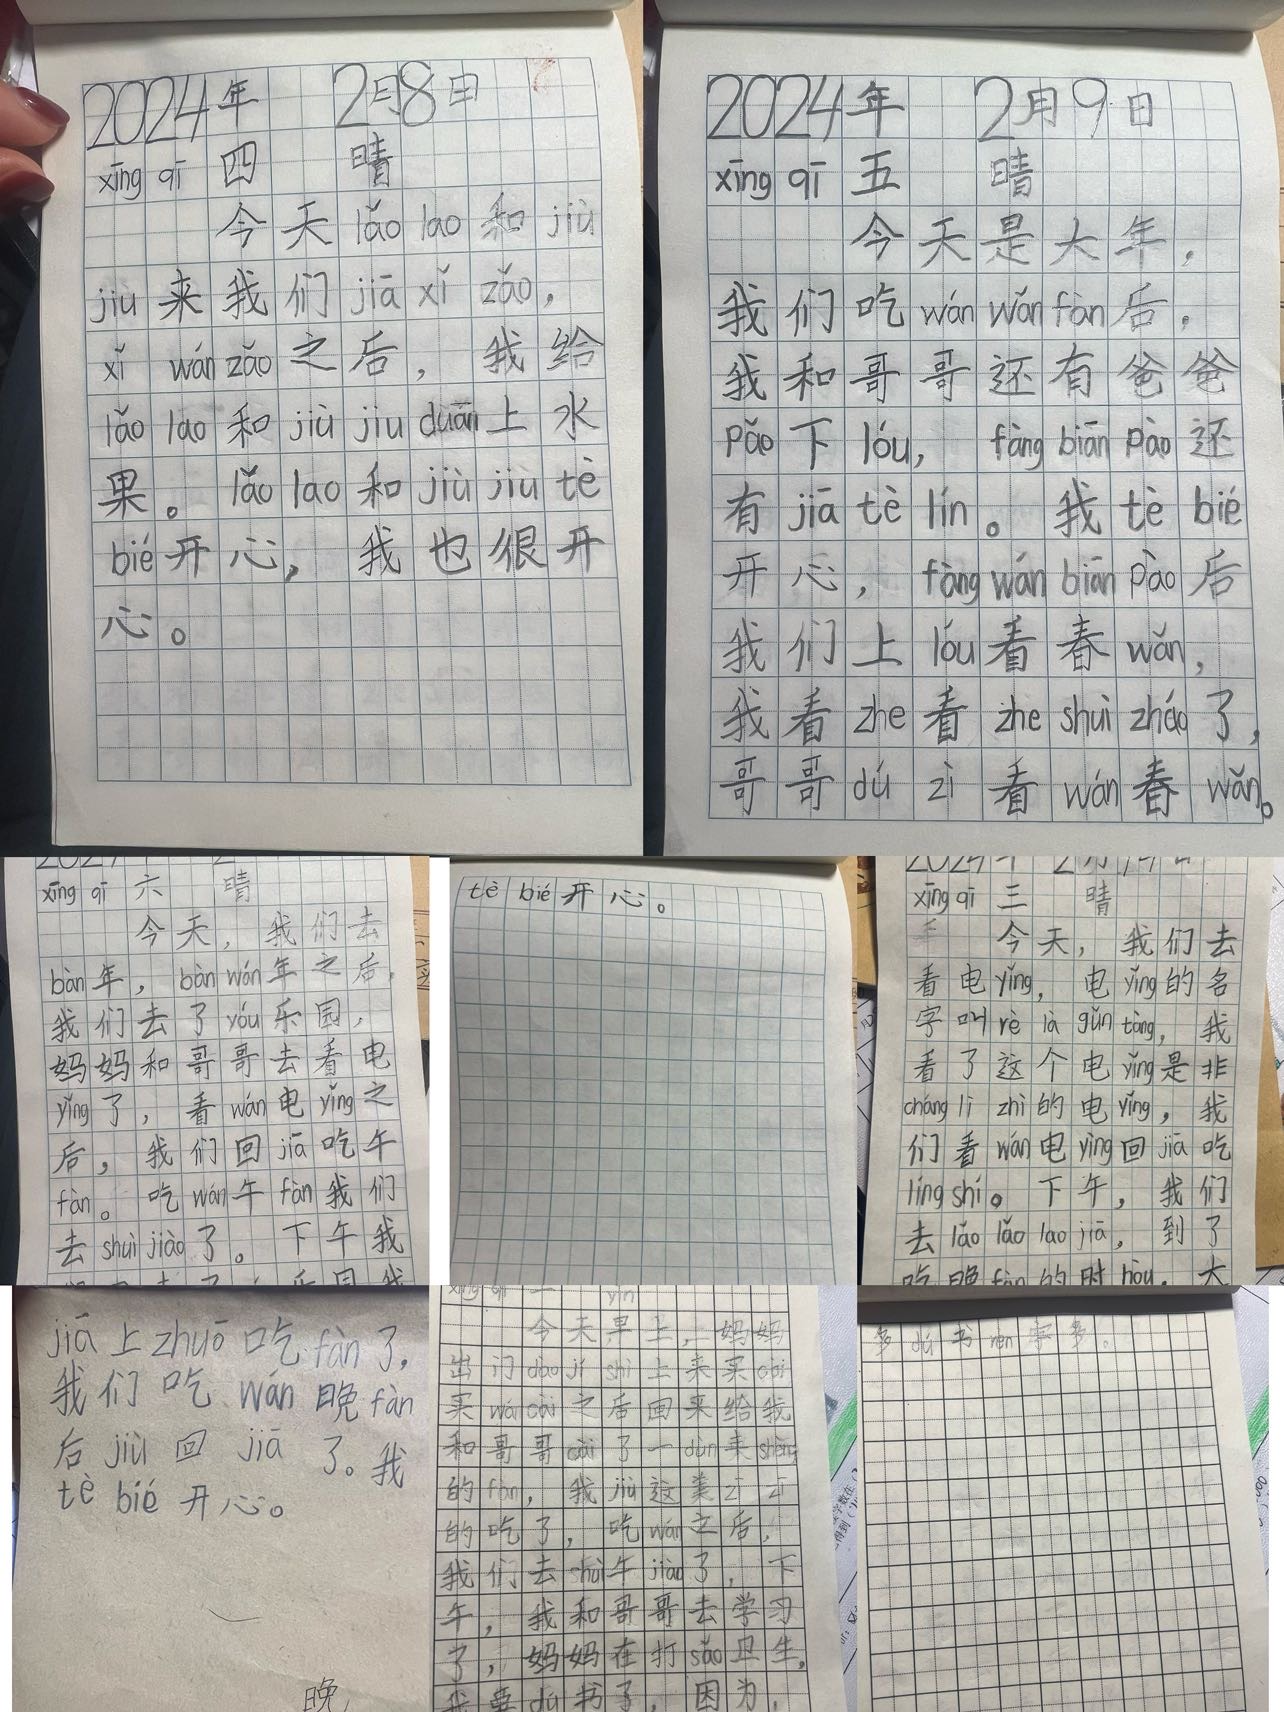 2024年 2月8日
xīng qī 四 晴
今天lǎo lao和jiù
jiu来我们jiā xǐ zǎo，
xǐ wán zǎo之后，我给
lǎo lao和jiù jiu duān上水
果。lǎo lao和jiù jiù tè
bié开心，我也很开
心。
2024年 2月9日
xīng qī 五 晴
今天是大年，
我们吃wán wǎn fàn后，
我和哥哥还有爸爸
pǎo下lóu，fàng biān pào还
有jiā tè lín。我tè bié
开心，fàng wán biān pào后
我们上lóu看春wǎn，
我看zhe看zhe shuì zháo了，
哥哥dú zì看wán春wǎn。
xīng qī 六 晴
今天，我们去
bàn年，bàn wán年之后，
我们去了yóu乐园，
妈妈和哥哥去看电
yǐng了，看wán电yǐng之
后，我们回jiā吃午
fàn。吃wán午fàn我们
去shuì jiào了。下午我
tè bié开心。
2024年 2月14日
xīng qī 三 晴
今天，我们去
看电yǐng，电yǐng的名
字叫rè là gǔn tàng，我
看了这个电yǐng是非
cháng lì zhì的电yǐng，我
们看wán电yǐng回jiā吃
líng shí。下午，我们
去lǎo lǎo lao jiā，到了
吃晚fàn的时hòu，大
jiā上zhuō吃fàn了，
我们吃wán晚fàn
后jiù回jiā了。我
tè bié开心。
晚
xīng qī 一
今天早上，妈妈
出门dào jí shì上来买cài
买wán cài之后回来给我
和哥哥cài了一dùn来shèng
的fàn，我jiù这美zī zī
的吃了，吃wán之后，
我们去shuì午jiào了，下
午，我和哥哥去学习
了，妈妈在打sǎo卫生，
我要dú书了，因为，
多dú书rèn字多。